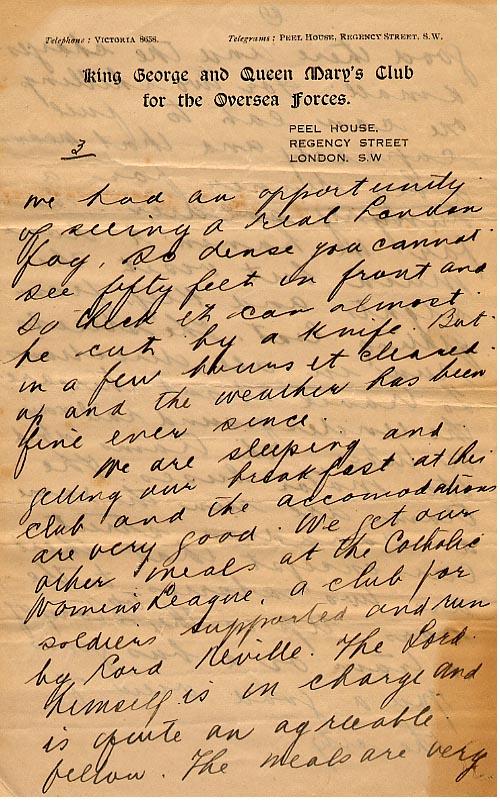 Telephone : VICTORIA 8658. Telegrams : PEEL HOUSE, REGENCY STREET, S.W.
King George and Queen Mary's Club
for the Oversea Forces.
PEEL HOUSE,
REGENCY STREET
LONDON. S.W
3
we had an opportunity
of seeing a real London
fog, so dense you cannot
see fifty feet in front and
so thick it can almost
be cut by a knife. But
in a few hours it cleared
up and the weather has been
fine ever since.
We are sleeping and
getting our breakfast at this
club and the accomodations
are very good. We get our
other meals at the Catholic
Women's League, a club for
soldiers supported and run
by Lord Neville. The Lord
himself is in charge and
is quite an agreeable
fellow. The meals are very